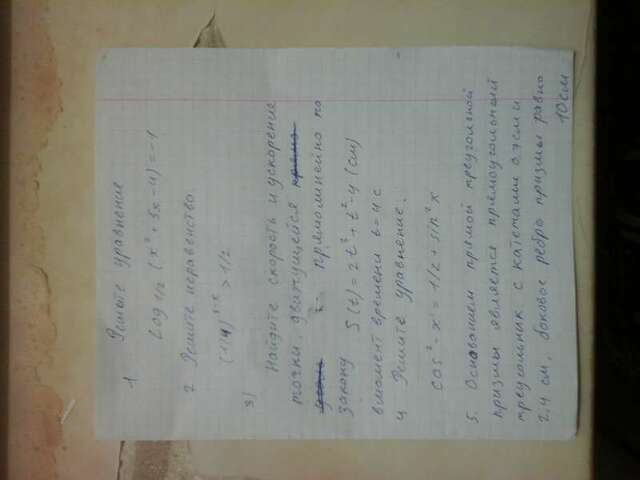 1 Решите уравнение
Log 1/2 (x² + 5x - 4) = -1
2 Решите неравенство.
(1/4) > 1/2
3)
Найдите скорость и ускорение
точки, движущейся
прямолинейно по
закону S(t) = 2t³ + t² - 4 (см)
вмомент времени t = 4 с
4 Решите уравнение.
cos² - x = 1/2 + sin² x
5. Основанием прямой треугольной
призмы является прямоугольный
треугольник с катетами 0,7см и
2,4 см, боковое ребро призмы равно
10см